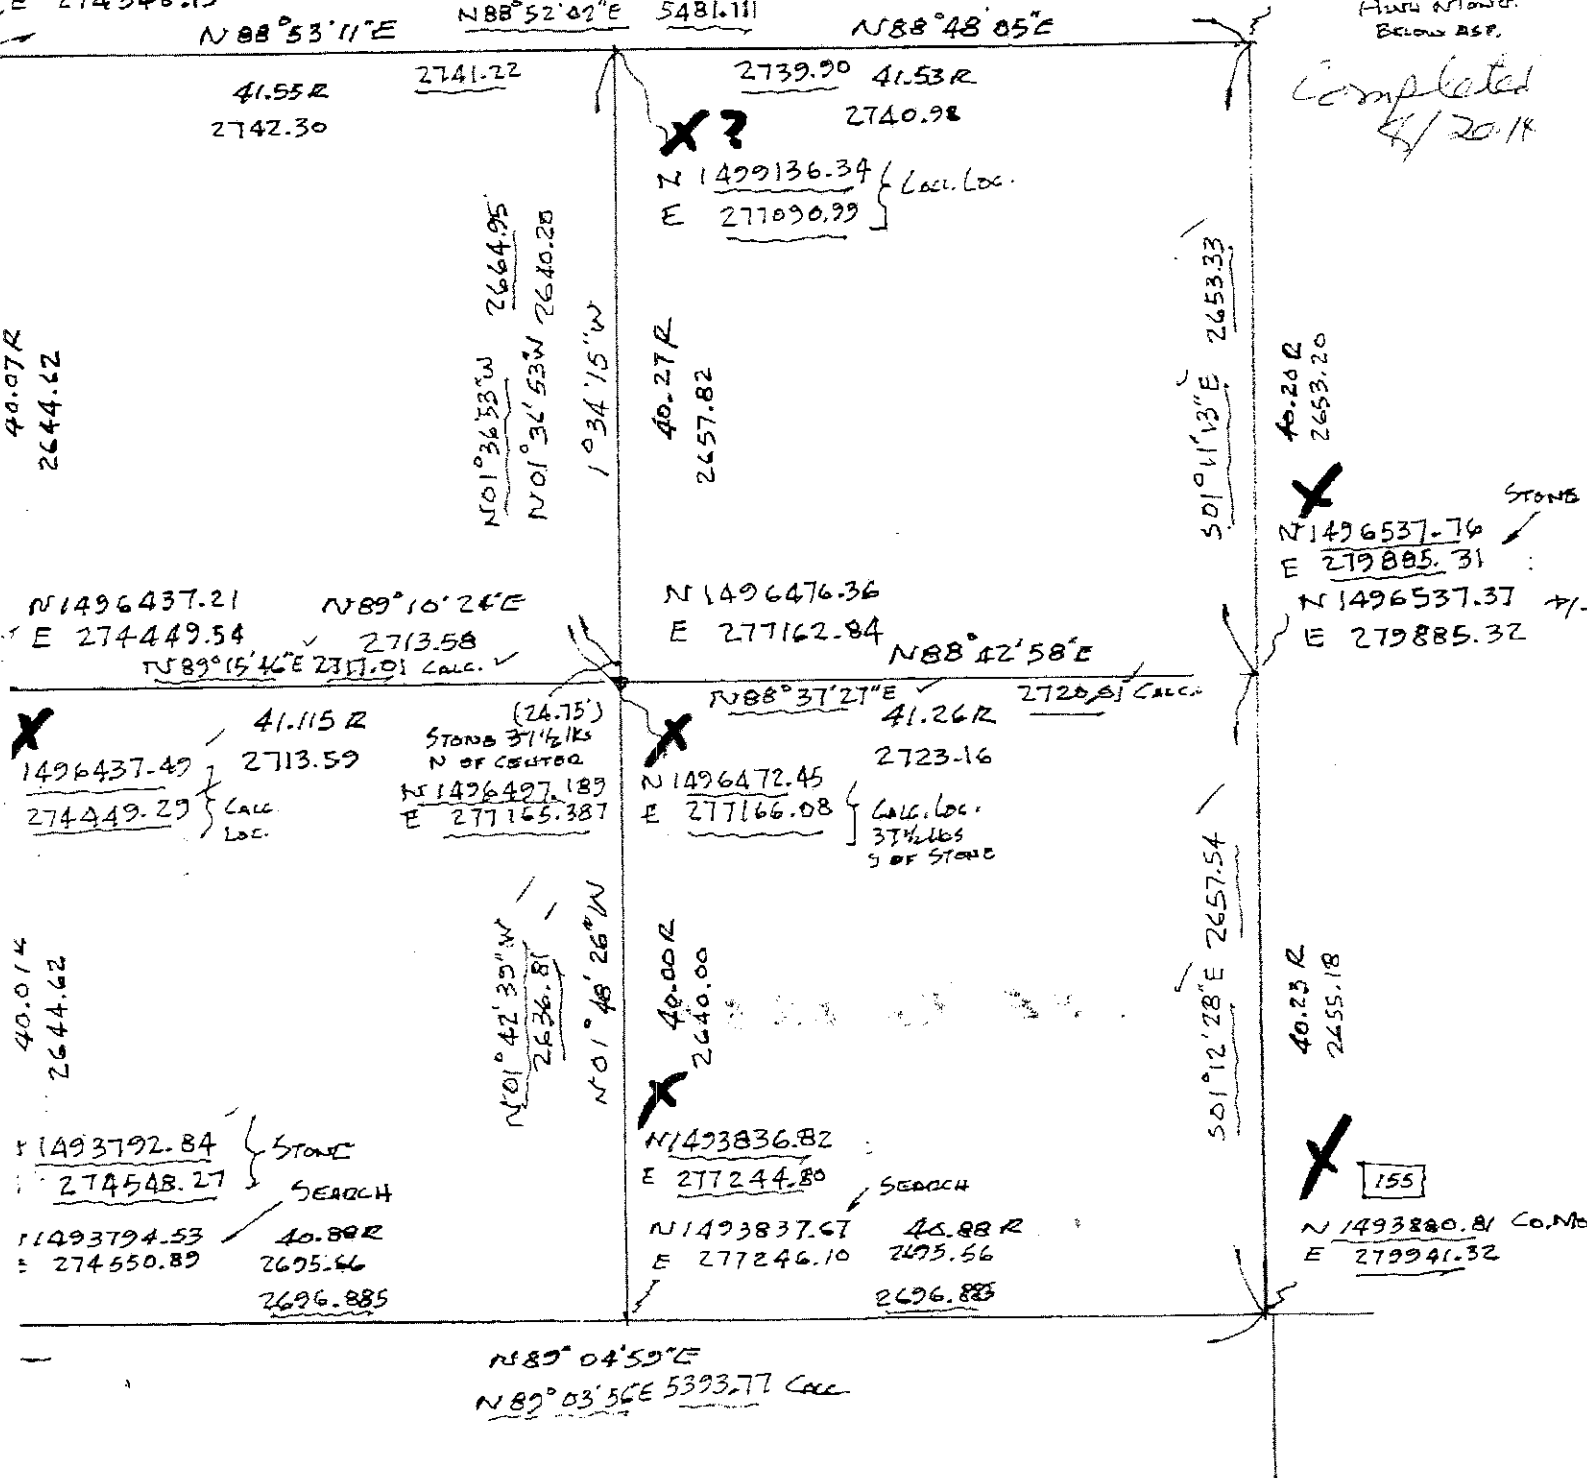 N88°52'02"E 5481.111
N88°53'11"E
N88°48'05"E
BELOW ASP.
Completed
2741.22
2739.90 41.53R
41.55R
2742.30
2740.98
X ?
N 1499136.34
E 277090.99
CALC. LOC.
40.07R
2644.62
N01°36'53"W 2664.95
N01°36'53"W 2640.20
1°34'15"W
40.27R
2657.82
S01°11'13"E 2653.33
40.20R
2653.20
X
STONE
N 1496537.76
E 279885.31
N 1496537.37 +/-
E 279885.32
N 1496437.21
E 274449.54
N89°10'24"E
2713.58
N89°15'46"E 2717.01 CALC.
N 1496476.36
E 277162.84
N88°42'58"E
N88°37'27"E
CALC.
X
41.115R
2713.59
1496437.49
274449.29
CALC.
LOC.
(24.75')
STONE 37½ lks
N OF CENTER
N 1496497.189
E 277165.387
X
41.26R
2723.16
N 1496472.45
E 277166.08
CALC. LOC.
37½ lks
S OF STONE
2644.62
N01°42'39"W
2636.81
N01°48'26"W
40.00R
2640.00
S01°12'28"E 2657.54
40.23R
2655.18
1493792.84
274548.27
STONE
SEARCH
1493794.53
274550.89
40.88R
2695.66
2696.885
X
N 1493836.82
E 277244.80
SEARCH
N 1493837.67
E 277246.10
40.88R
2695.56
2696.885
X
155
N 1493880.81 Co.Mo
E 279941.32
N89°04'59"E
N89°03'56"E 5393.77 CALC